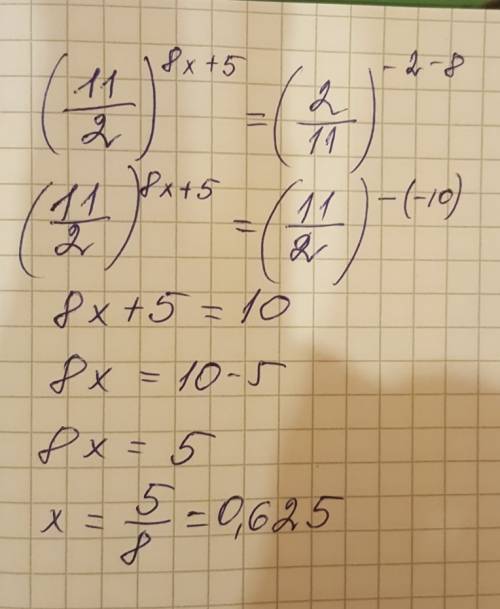 (11/2)^(8x+5) = (2/11)^(-2-8)
(11/2)^(8x+5) = (11/2)^(-(-10))
8x+5=10
8x = 10-5
8x = 5
x = 5/8 = 0,625